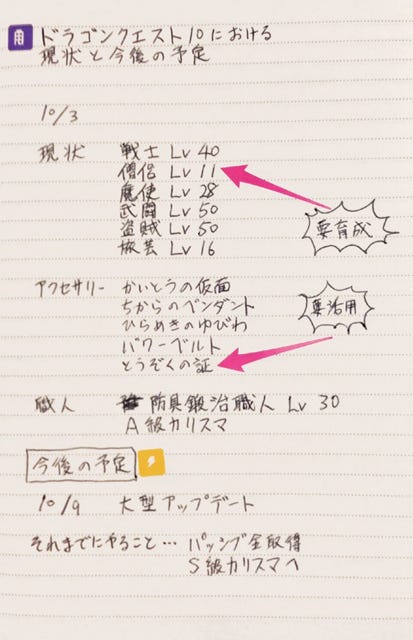 ドラゴンクエスト10における
現状と今後の予定
10/3
現状 戦士 Lv 40
僧侶 Lv 11
魔使 Lv 28
武闘 Lv 50
盗賊 Lv 50
旅芸 Lv 16
要育成
アクセサリー かいとうの仮面
ちからのペンダント
ひらめきのゆびわ
パワーベルト
とうぞくの証
要活用
職人 防具鍛冶職人 Lv 30
A級カリスマ
今後の予定
10/9 大型アップデート
それまでにやること… パッシブ全取得
S級カリスマへ